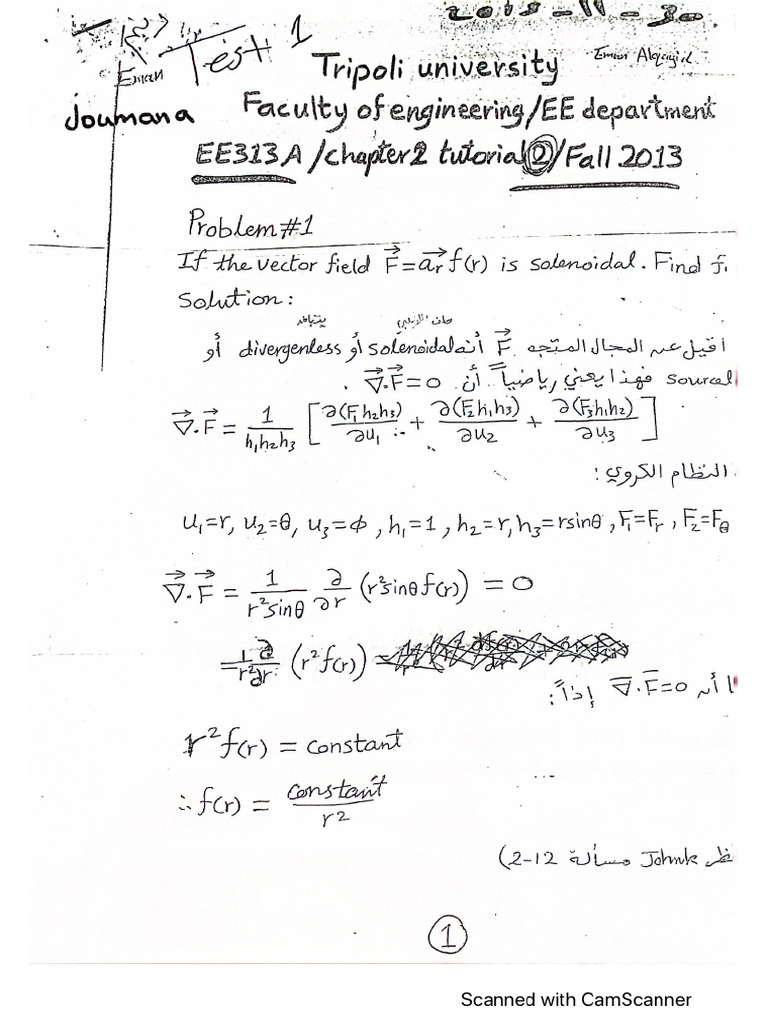 2018-11-30
Test 1
Eman
Joumana
Tripoli university
Faculty of engineering/EE department
EE313A/chapter2 tutorial②/Fall 2013
Problem#1
If the vector field F⃗=a⃗r f(r) is solenoidal. Find f.
Solution:
اقيل عن المجال المتجه F⃗ أنه solenoidal أو divergenless أو
sourcel فهذا يعني رياضياً أن ∇⃗.F⃗=0 .
∇⃗.F⃗ = 1/(h₁h₂h₃) [∂(F₁h₂h₃)/∂u₁ + ∂(F₂h₁h₃)/∂u₂ + ∂(F₃h₁h₂)/∂u₃]
النظام الكروي:
u₁=r, u₂=θ, u₃=ϕ, h₁=1, h₂=r, h₃=rsinθ, F₁=Fr, F₂=Fθ
∇⃗.F⃗ = 1/(r²sinθ) ∂/∂r (r²sinθ f(r)) = 0
= 1/r² ∂/∂r (r²f(r))
ا أنه ∇.F=0 إذاً:
r²f(r) = constant
∴ f(r) = constant/r²
ظر Johnk مسألة 2-12)
①
Scanned with CamScanner